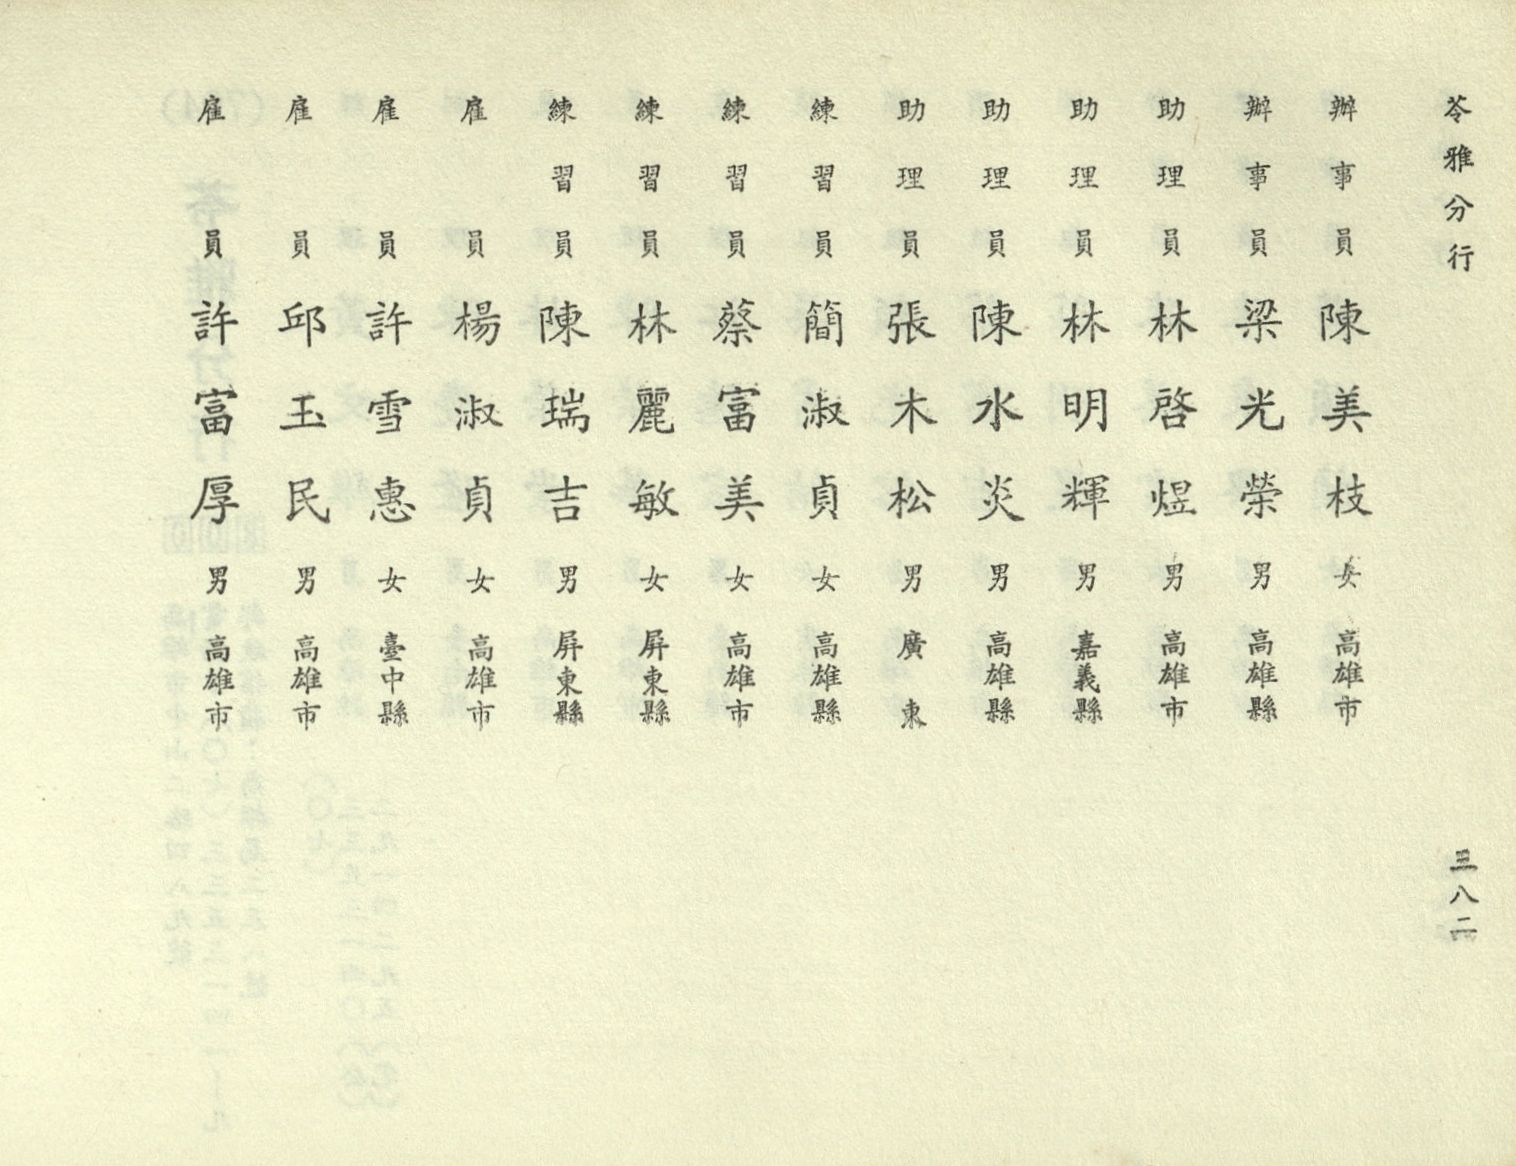 苓雅分行
三八二
辦事員 陳美枝 女 高雄市
辦事員 梁光榮 男 高雄縣
助理員 林啓煜 男 高雄市
助理員 林明輝 男 嘉義縣
助理員 陳水炎 男 高雄縣
助理員 張木松 男 廣東
練習員 簡淑貞 女 高雄縣
練習員 蔡富美 女 高雄市
練習員 林麗敏 女 屏東縣
練習員 陳瑞吉 男 屏東縣
雇員 楊淑貞 女 高雄市
雇員 許雪惠 女 臺中縣
雇員 邱玉民 男 高雄市
雇員 許富厚 男 高雄市